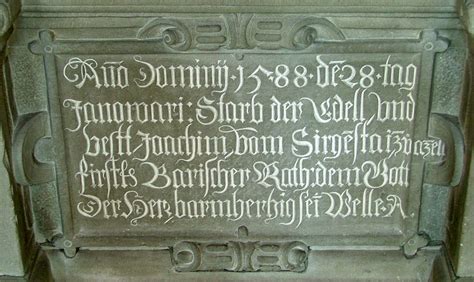 Año Dominij · 15 · 88 · dē · 28 · tag
Janowari : Starb der Edell, vnd
vestt Joachim vom Sirgēsta
fürstl Barischer Rath: dem Gott
Der Herr, barmhertzig sei Welle · A ·